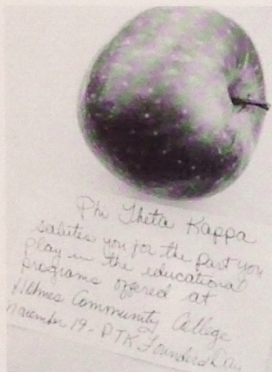 Phi Theta Kappa
salutes you for the part you
play in the educational
programs offered at
Holmes Community College.
November 19 - PTK Founders Day